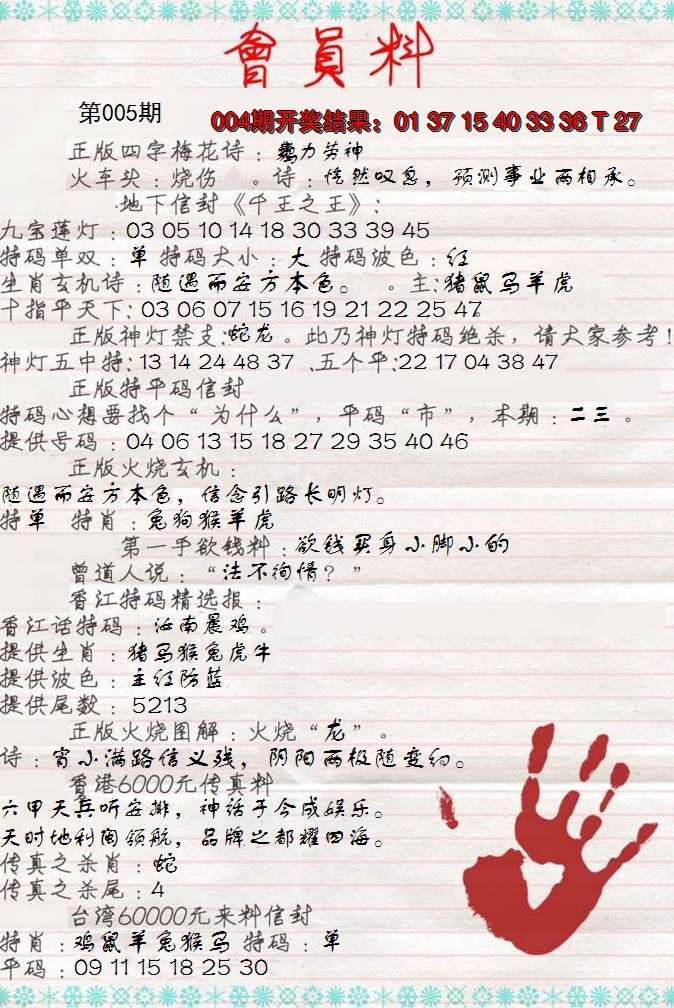 會員料
第005期
004期开奖结果：01 37 15 40 33 36 T 27
正版四字梅花诗：劳力劳神
火车头：烧伤 。诗：恍然叹息，预测事业两相承。
地下信封《千王之王》：
九宝莲灯：03 05 10 14 18 30 33 39 45
特码单双：单 特码大小：大 特码波色：红
生肖玄机诗：随遇而安方本色。 。主：猪鼠马羊虎
十指平天下：03 06 07 15 16 19 21 22 25 47
正版神灯禁支：蛇龙。此乃神灯特码绝杀，请大家参考！
神灯五中特：13 14 24 48 37 、五个平：22 17 04 38 47
正版特平码信封
特码心想要找个“为什么”，平码“市”，本期：二三。
提供号码：04 06 13 15 18 27 29 35 40 46
正版火烧玄机：
随遇而安方本色，信念引路长明灯。
特单 特肖：兔狗猴羊虎
第一手欲钱料：欲钱买身小脚小的
曾道人说：“法不徇情？”
香江特码精选报：
香江话特码：汝南晨鸡。
提供生肖：猪马猴兔虎牛
提供波色：主红防蓝
提供尾数：5213
正版火烧图解：火烧“龙”。
诗：宵小满路信义残，阴阳两极随变约。
香港6000元传真料
六甲天兵听安排，神话于今成娱乐。
天时地利阁领航，品牌之都耀四海。
传真之杀肖：蛇
传真之杀尾：4
台湾60000元来料信封
特肖：鸡鼠羊兔猴马 特码：单
平码：09 11 15 18 25 30